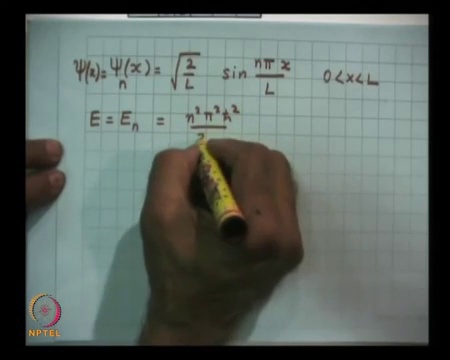 Ψ(x) = Ψₙ(x) = √(2/L) sin nπx/L 0<x<L
E = Eₙ = n²π²ħ²/2
NPTEL